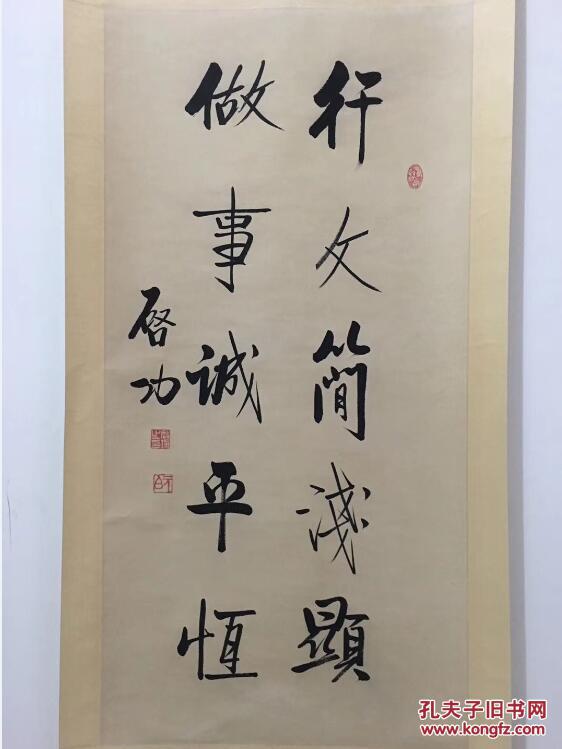 行文簡淺顯
做事誠平恆
啓功
孔夫子旧书网
www.kongfz.com